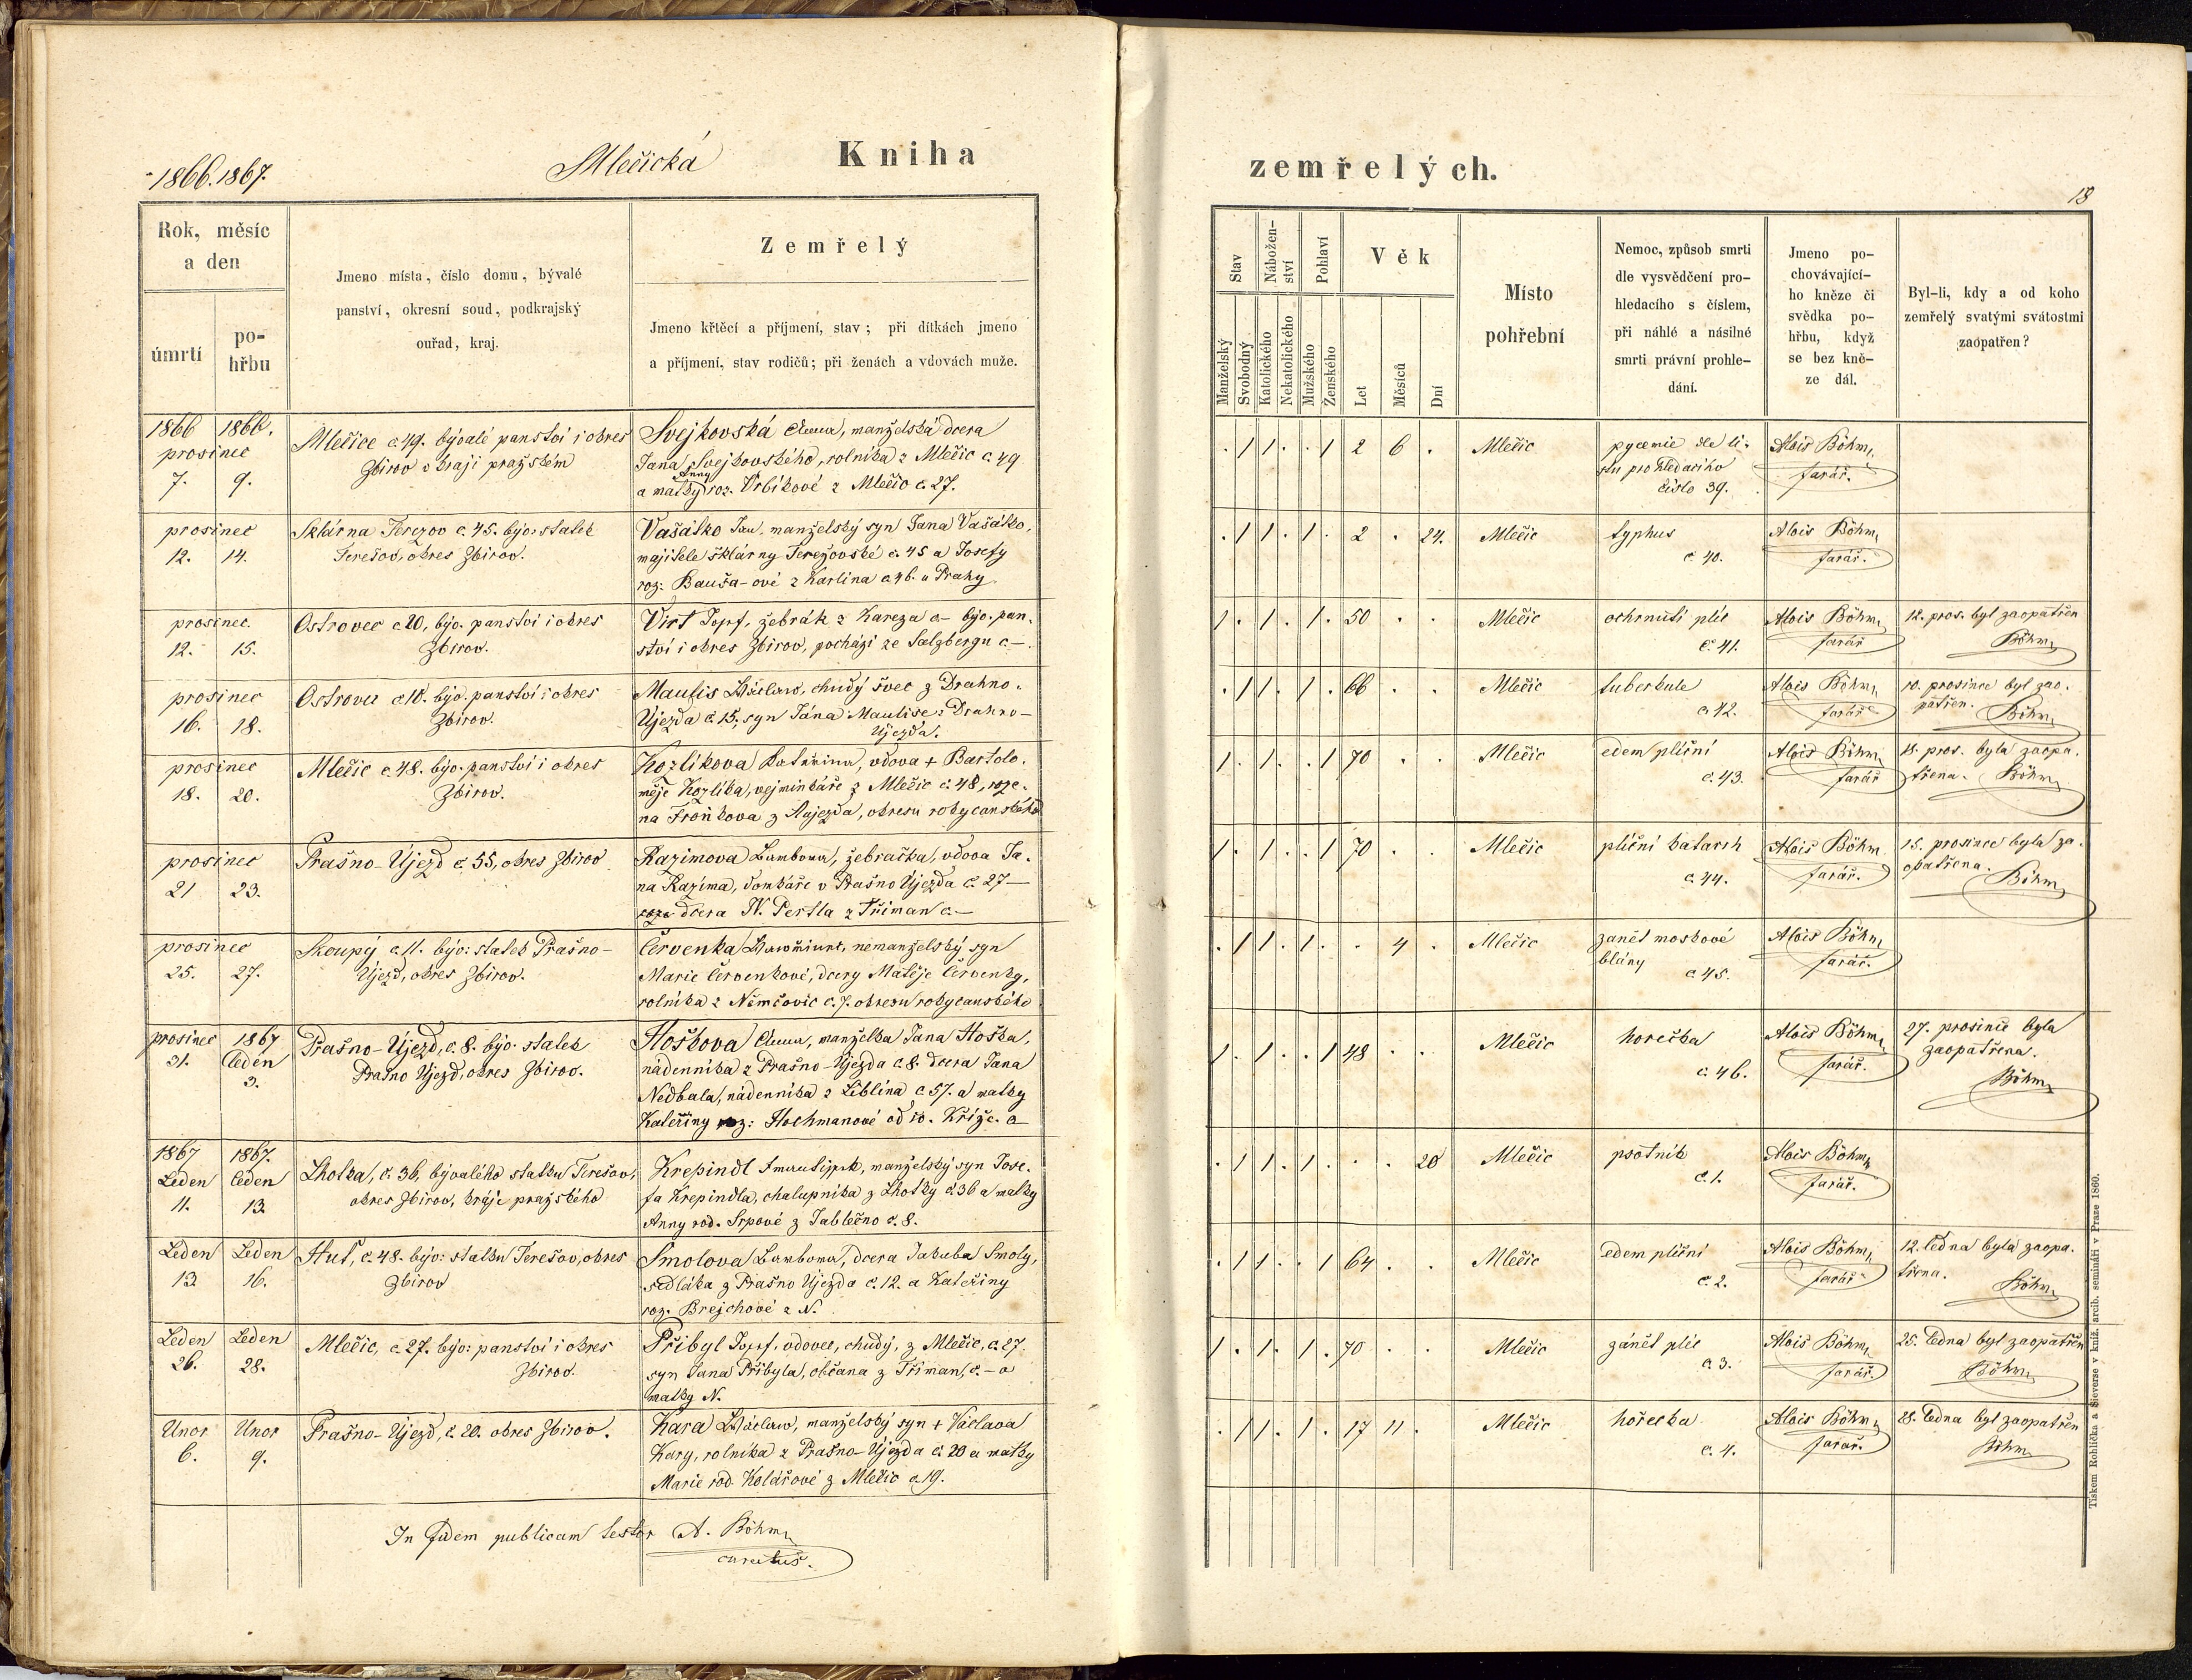 1866. 1867.
Mlečická
Kniha
zemřelých.
18
Rok, měsíc
a den
úmrtí
po-
hřbu
Jmeno místa, číslo domu, bývalé
panství, okresní soud, podkrajský
ouřad, kraj.
Zemřelý
Jmeno křtěcí a příjmení, stav; při dítkách jmeno
a příjmení, stav rodičů; při ženách a vdovách muže.
Stav
Nábožen-
ství
Pohlaví
Věk
Manželský
Svobodný
Katolického
Nekatolického
Mužského
Ženského
Let
Měsíců
Dní
Místo
pohřební
Nemoc, způsob smrti
dle vysvědčení pro-
hledacího s číslem,
při náhlé a násilné
smrti právní prohle-
dání.
Jmeno po-
chovávající-
ho kněze či
svědka po-
hřbu, když
se bez kně-
ze dál.
Byl-li, kdy a od koho
zemřelý svatými svátostmi
zaopatřen?
1866 1866.
prosinec
7. 9.
Mlečice č 49. bývalé panství i okres
Zbirov v kraji pražském
Svejkovská Anna, manželská dcera
Jana Svejkovského, rolníka z Mlečic č. 49
Anny
a matky roz. Vrbíkové z Mlečic č. 27.
. 1 1 . . 1 2 6 .
Mlečic
pyœmie dle li-
stu prohledacího
číslo 39.
Alois Böhm,
farář.
prosinec
12. 14.
Sklárna Terezov č. 45. býv. statek
Terešov, okres Zbirov.
Vašátko Jan, manželský syn Jana Vašátko,
majitele sklárny Terezovské č. 45 a Josefy
roz: Bauša-ové z Karlína č 46. u Prahy
. 1 1 . 1 . 2 . 24.
Mlečic
typhus
č 40.
Alois Böhm,
farář.
prosinec.
12. 15.
Ostrovec č 20, býv. panství i okres
Zbirov.
Virt Josef, žebrák z Kareza č- býv. pan-
ství i okres Zbirov, pochází ze Salzbergu č-.
1 . 1 . 1 . 50 . .
Mlečic
ochrnutí plic
č 41.
Alois Böhm,
farář
12. pros. byl zaopatřen
Böhm
prosinec
16. 18.
Ostrovec č 10. býv. panství i okres
Zbirov.
Maulis Václav, chudý švec z Drahno-
Újezda č. 15, syn Jána Maulise z Drahno-
Újezda.
. 1 1 . 1 . 66 . .
Mlečic
tuberkule
č 42.
Alois Böhm,
farář
10. prosince byl zao-
patřen.
Böhm
prosinec
18. 20.
Mlečic č. 48. býv. panství i okres
Zbirov.
Kozlíkova Katařina, vdova + Bartolo-
měje Kozlíka, vejminkáře z Mlečic č. 48, roze-
na Froňkova z Aujezda, okresu rokycanského
1 . 1 . . 1 70 . .
Mlečic
edem plícní
č. 43.
Alois Böhm
farář
18. pros. byla zaopa-
třena. Böhm
prosinec
21 23.
Prašno-Újezd č. 55, okres Zbirov
Razimova Barbora, žebračka, vdova Ja-
na Razíma, domkáře v Prašno Újezda č. 27-
dcera N. Pertla z Tříman č.-
1 . 1 . . 1 70 . .
Mlečic
plícní katarrh
č. 44.
Alois Böhm
farář.
15. prosince byla za-
opatřena.
Böhm
prosinec
25. 27.
Skoupý č. 11. býv: statek Prašno-
Újezd, okres Zbirov.
Červenka Vavřinec, nemanželský syn
Marie Červenkové, dcery Matěje Červenky,
rolníka z Němčovic č. 7. okresu rokycanského
. 1 1 . 1 . . 4 .
Mlečic
zanět moskové
blány
č 45.
Alois Böhm,
farář.
prosinec 1867
31. leden
3.
Prašno-Újezd, č. 8. býv. statek
Prašno Újezd, okres Zbirov.
Hoškova Anna, manželka Jana Hoška,
nádenníka z Prašno-Újezda č 8. dcera Jana
Nedbala, nádenníka z Liblína č. 57. a matky
Kateřiny roz: Hochmanové od sv. Kříže. č
1 . 1 . . 1 48 . .
Mlečic
horečka
č. 46.
Alois Böhm,
farář.
27. prosince byla
zaopatřena.
Böhm
1867 1867.
Leden leden
11. 13.
Lhotka, č. 36, bývalého statku Terešov,
okres Zbirov, kraje pražského
Krepindl, manželský syn Jose-
fa Krepindla, chalupníka z Lhotky č. 36 a matky
Anny rod. Srpové z Jablečno č. 8.
. 1 1 . 1 . . . 20
Mlečic
psotník
č. 1.
Alois Böhm,
farář.
Leden Leden
13. 16.
Huť, č. 48. býv: statku Terešov, okres
Zbirov
Smolova Barbora, dcera Jakuba Smoly,
sedláka z Prašno Újezda č. 12. a Kateřiny
roz. Brejchové z N.
. 1 1 . . 1 64 . .
Mlečic
edem plícní
č. 2.
Alois Böhm,
farář
12. ledna byla zaopa-
třena.
Böhm
Leden Leden
26. 28.
Mlečic, č. 27. býv: panství i okres
Zbirov.
Přibyl Josef, vdovec, chudý, z Mlečic, č. 27.
syn Jana Přibyla, občana z Tříman, č.- a
matky N.
1 . 1 . 1 . 70 . .
Mlečic
zánět plíc
č. 3.
Alois Böhm,
farář.
25. ledna byl zaopatřen
Böhm
Unor Unor
6. 9.
Prašno-Újezd, č. 20. okres Zbirov.
Kara Václav, manželský syn + Václava
Kary, rolníka z Prašno-Újezda č. 20 a matky
Marie rod. Kolářové z Mlečic č 19.
. 1 1 . 1 . 17 11 .
Mlečic
hořečka
č. 4.
Alois Böhm,
farář.
28. ledna byl zaopatřen
Böhm
In fidem publicam testor A. Böhm,
curatus.
Tiskem Rohlíčka a Sieverse v kníž. arcib. semináři v Praze 1860.